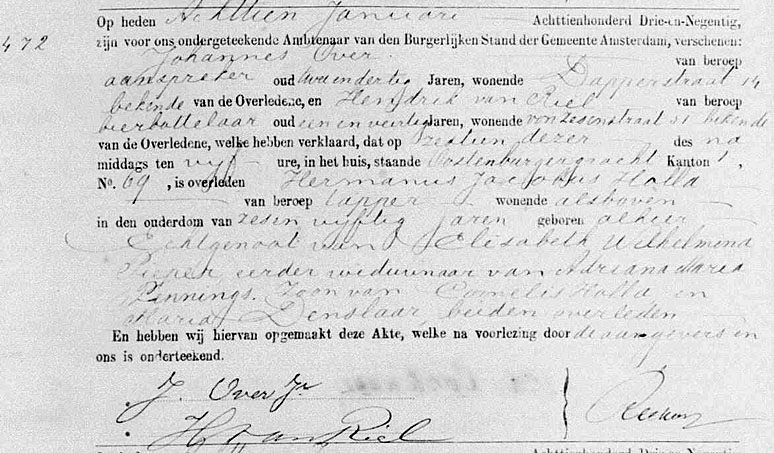 Op heden Achttien Januari Achttienhonderd Drie-en-Negentig,
472
zijn voor ons ondergeteekende Ambtenaar van den Burgerlijken Stand der Gemeente Amsterdam, verschenen:
Johannes Over van beroep
aanspreker oud twee en dertig Jaren, wonende Dapperstraat 14
bekende van de Overledene, en Hendrik van Riel van beroep
bierbottelaar oud een en veertig Jaren, wonende von Zesenstraat 31 bekende
van de Overledene, welke hebben verklaard, dat op Zestien dezer des na
middags ten vijf ure, in het huis, staande Oostenburgergracht Kanton 1,
No. 69, is overleden Hermanus Jacobus Holla
van beroep tapper wonende alsboven
in den ouderdom van zes en vijftig jaren geboren alhier
Echtgenoot van Elisabeth Wilhelmina
Pieper eerder weduwnaar van Adriana Maria
Pennings. Zoon van Cornelis Holla en
Maria Denslaar beiden overleden
En hebben wij hiervan opgemaakt deze Akte, welke na voorlezing door de aangevers en
ons is onderteekend.
J. Over Jr
H van Riel
Achttienhonderd Drie-en-Negentig